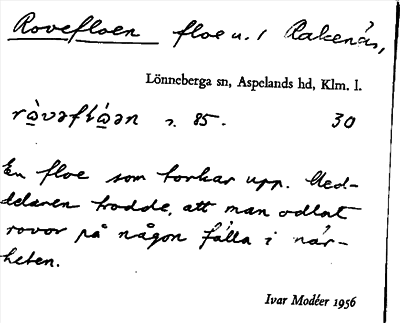 Rovefloen floe u. / Rakenäs,
Lönneberga sn, Aspelands hd, Klm. l.
rò̱vəfló̱ən s. 85. 30
En floe som torkar upp. Med-
delaren trodde, att man odlat
rovor på någon fålla i när-
heten.
Ivar Modéer 1956